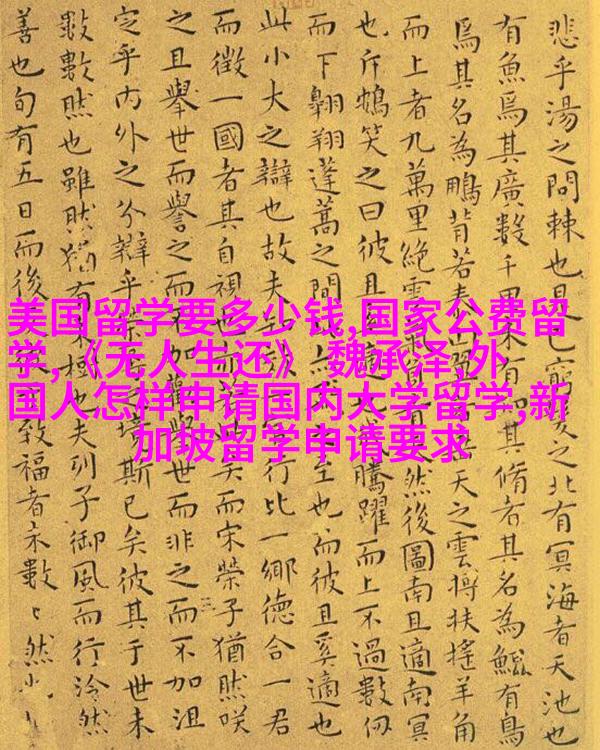 美国留学要多少钱,国家公费留
学,《无人生还》 魏承泽,外
国人怎样申请国内大学留学,新
加坡留学申请要求
悲乎湯之問棘也是已窮之北有冥海者天池也
有魚焉其廣數千里未有知其脩者其名為鯤有鳥
焉其名為鵬背若泰山翼若天之雲摶扶搖羊角
而上者九萬里絕雲氣負然後圖南且適南冥
也斥鴳笑之曰彼且騰躍而上不過數仞
而下翱翔蓬蒿之間至也而彼且奚適也
此小大之辯也故夫行比一鄉德合一君
而徵一國者其自視也矣而宋榮子猶然咲
之且舉世而譽之而不加勸舉世而非之而不加沮
定乎內外之分辯乎榮之境斯已矣彼其于世未
數數然也雖然猶有也夫列子御風而行泠然
善也旬有五日而後致福者未數々然